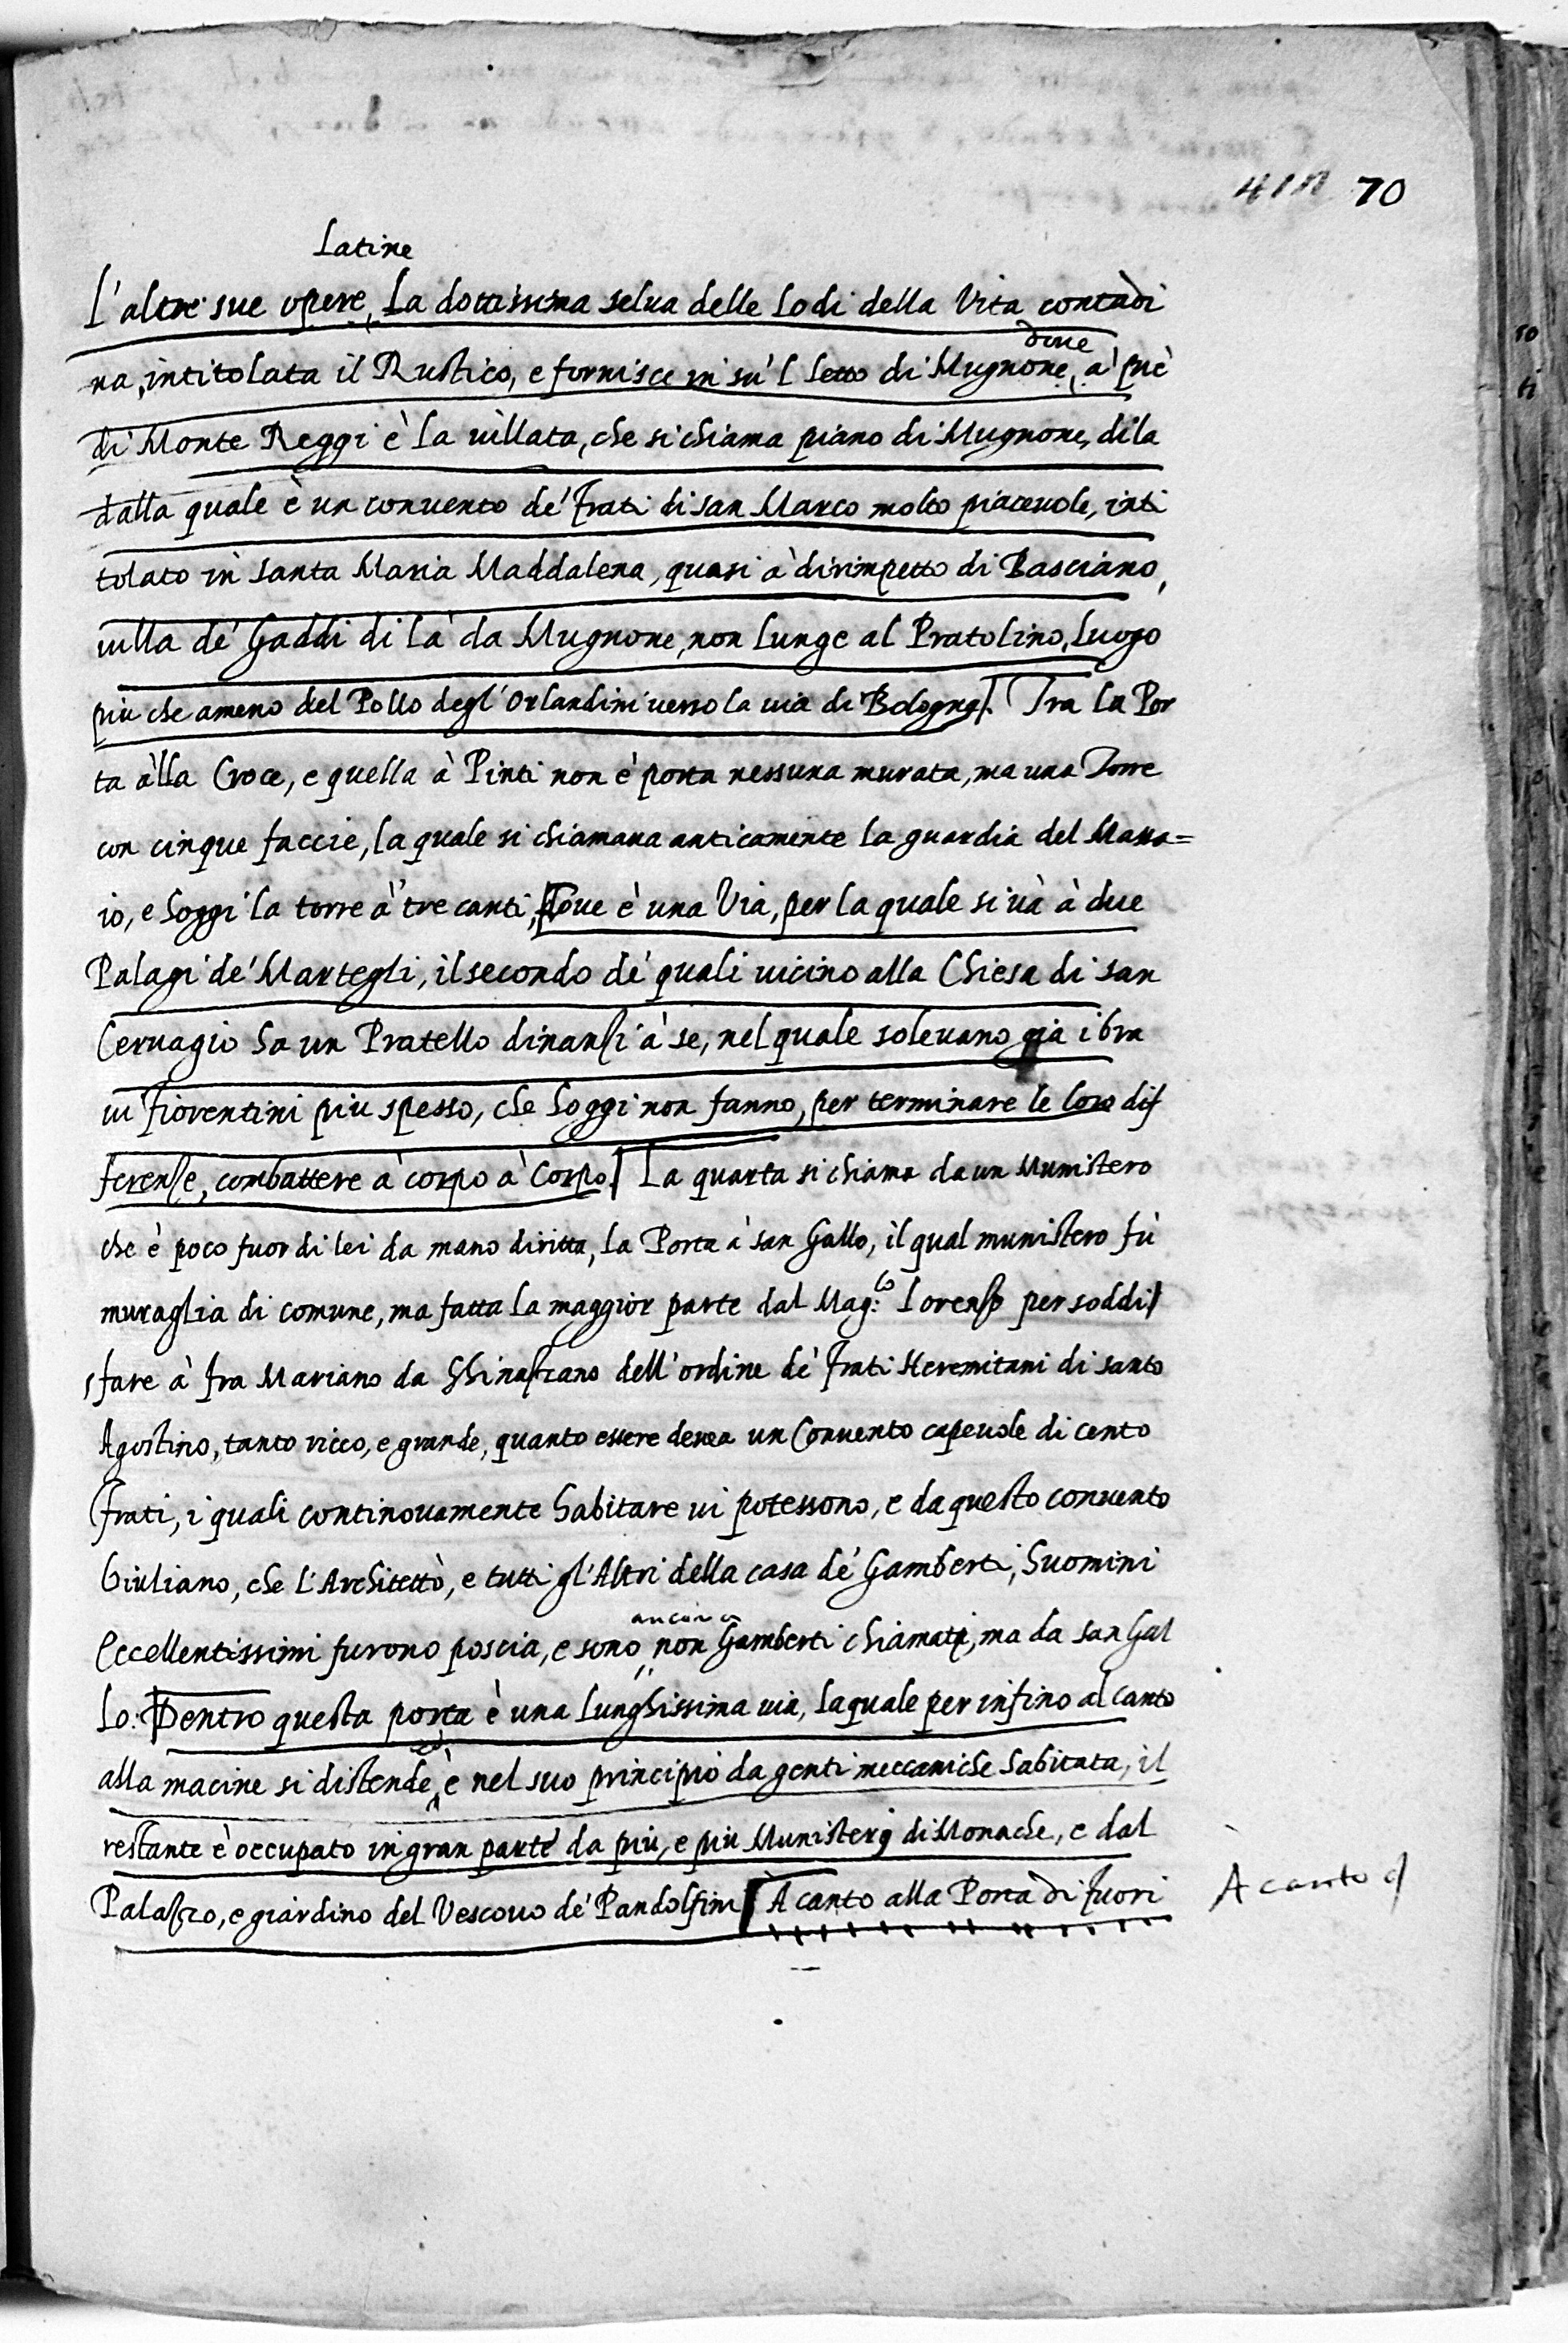 418 70
Latine
L'altre sue opere, La dottissima selua delle lodi della Vita contadi
na, intitolata il Rustico, e fornisce in sù'l letto di Mugnone, à piè
doue
di Monte Reggi è la uillata, che si chiama piano di Mugnone, di la
dalla quale è un conuento de' frati di san Marco molto piaceuole, inti
tolato in santa Maria Maddalena, quasi à dirimpetto di Basciano,
uilla de' Gaddi di là da Mugnone, non lunge al Pratolino, luogo
piu che ameno del Pollo degl'Orlandini uerso la uia di Bologna]. Tra la Por
ta àlla Croce, e quella à Pinti non è porta nessuna murata, ma una Torre
con cinque faccie, la quale si chiamaua anticamente la guardia del Massa=
io, e hoggi la torre à tre canti, [Doue è una Via, per la quale si uà à due
Palagi de' Martegli, il secondo de' quali uicino alla Chiesa di san
Ceruagio ha un Pratello dinanzi à se, nel quale soleuano già i bra
ui fiorentini piu spesso, che hoggi non fanno, per terminare le loro dif
ferenze, combattere à corpo à corpo.] La quarta si chiama da un Munistero
che è poco fuor di lei da mano diritta, la Porta à san Gallo, il qual munistero fù
muraglia di comune, ma fatta la maggior parte dal Mag:co Lorenzo per soddi
sfare à fra Mariano da Ghinazzano dell'ordine de' frati Heremitani di santo
Agostino, tanto ricco, e grande, quanto essere deuea un Conuento capeuole di cento
frati, i quali continouamente habitare ui potessono, e da questo conuento
Giuliano, che l'Architettò, e tutti gl'Altri della casa de' Gamberti, huomini
eccellentissimi furono poscia, e sono non Gamberti chiamati, ma da san Gal
ancora
lo. [Dentro questa porta è una lunghissima uia, laquale per infino al canto
alla macine si distende, è nel suo principio da genti meccaniche habitata, il
restante è occupato in gran parte da piu, e piu Munisterij di Monache, e dal
Palazzo, e giardino del Vescouo de' Pandolfini] A canto alla Porta di fuori
A canto